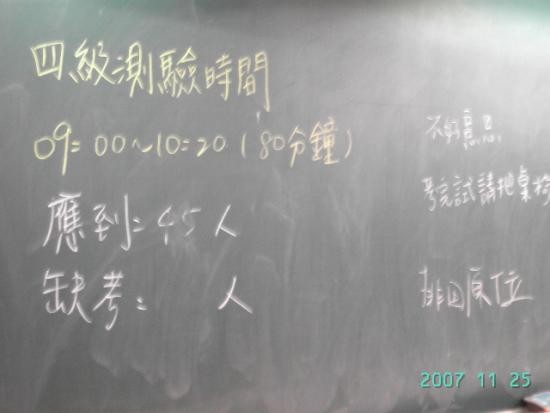 四級測驗時間
09:00~10:20(80分鐘)
應到:45人
缺考: 人
不好意思
考完試請把桌椅
排回原位
2007 11 25